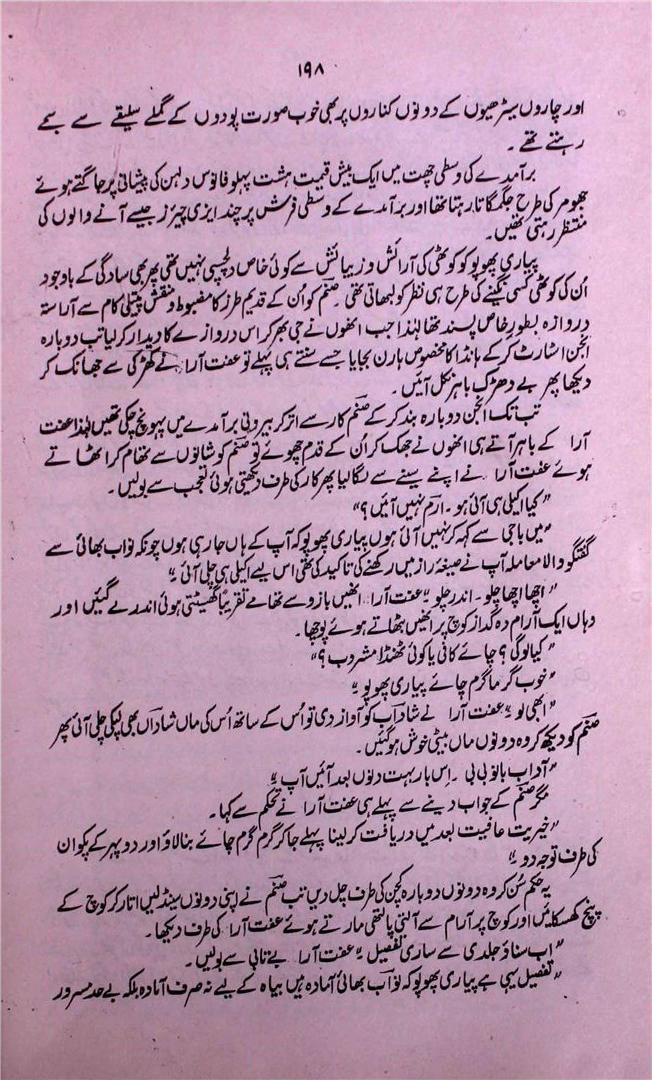 ۱۹۸
اور چاروں سیڑھیوں کے دونوں کناروں پر بھی خوب صورت پودوں کے گملے سلیقے سے سجے
رہتے تھے۔
برآمدے کی وسطی چھت میں ایک بیش قیمت ہشت پہلو فانوس دلہن کی پیشانی پر جگمگاتے ہوئے
جھومر کی طرح جگمگاتا رہتا تھا اور برآمدے کے وسطی فرش پر چند ایزی چیئرز جیسے آنے والوں کی
منتظر رہتی تھیں۔
پیاری پھوپو کو کوٹھی کی آرائش و زیبائش سے کوئی خاص دلچسپی نہیں تھی پھر بھی سادگی کے باوجود
اُن کی کوٹھی کسی نگینے کی طرح ہی نظر کو لبھاتی تھی۔ صنم کو اُن کے قدیم طرز کا مضبوط و منقش پیتلی کام سے آراستہ
دروازہ بطور خاص پسند تھا لہٰذا جب انھوں نے جی بھر کر اس دروازے کا دیدار کر لیا تب دوبارہ
انجن اسٹارٹ کر کے ہانڈا کا مخصوص ہارن بجایا جسے سنتے ہی پہلے تو عفت آرا نے کھڑکی سے جھانک کر
دیکھا پھر بے دھڑک باہر نکل آئیں۔
تب تک انجن دوبارہ بند کر کے صنم کار سے اتر کر بیرونی برآمدے میں پہونچ چکی تھیں لہٰذا عفت
آرا کے باہر آتے ہی انھوں نے جھک کر اُن کے قدم چھوئے تو صنم کو شانوں سے تھام کر اٹھاتے
ہوئے عفت آرا نے اپنے سینے سے لگا لیا پھر کار کی طرف دیکھتی ہوئی تعجب سے بولیں۔
"کیا اکیلی ہی آئی ہو۔ ارم نہیں آئیں؟"
"میں باجی سے کہہ کر نہیں آئی ہوں پیاری پھوپو کہ آپ کے ہاں جا رہی ہوں چونکہ نواب بھائی سے
گفتگو والا معاملہ آپ نے صیغۂ راز میں رکھنے کی تاکید کی تھی اس لیے اکیلی ہی چلی آئی۔"
"اچھا اچھا چلو۔ اندر چلو۔" عفت آرا انھیں بازو سے تھامے تقریباً گھسیٹتی ہوئی اندر لے گئیں اور
وہاں ایک آرام دہ گداز کوچ پر انھیں بٹھاتے ہوئے پوچھا۔
"کیا لوگی؟ چائے کافی یا کوئی ٹھنڈا مشروب؟"
"خوب گرما گرم چائے پیاری پھوپو۔"
"ابھی لو۔" عفت آرا نے شاداب کو آواز دی تو اُس کے ساتھ اُس کی ماں شاداں بھی لپکی چلی آئی پھر
صنم کو دیکھ کر وہ دونوں ماں بیٹی خوش ہو گئیں۔
"آداب بانو بی بی۔ اِس بار بہت دنوں بعد آئیں آپ۔"
مگر صنم کے جواب دینے سے پہلے ہی عفت آرا نے تحکم سے کہا۔
"خیریت عافیت بعد میں دریافت کر لینا پہلے جا کر گرم گرم چائے بنا لاؤ اور دوپہر کے پکوان
کی طرف توجہ دو۔"
یہ حکم سُن کر وہ دونوں دوبارہ کچن کی طرف چل دیں تب صنم نے اپنی دونوں سینڈلیں اتار کر کوچ کے
نیچے کھسکائیں اور کوچ پر آرام سے آلتی پالتھی مارتے ہوئے عفت آرا کی طرف دیکھا۔
"اب سناؤ جلدی سے ساری تفصیل۔" عفت آرا بے تابی سے بولیں۔
"تفصیل یہی ہے پیاری پھوپو کہ نواب بھائی آمادہ ہیں بیاہ کے لیے نہ صرف آمادہ بلکہ بے حد مسرور